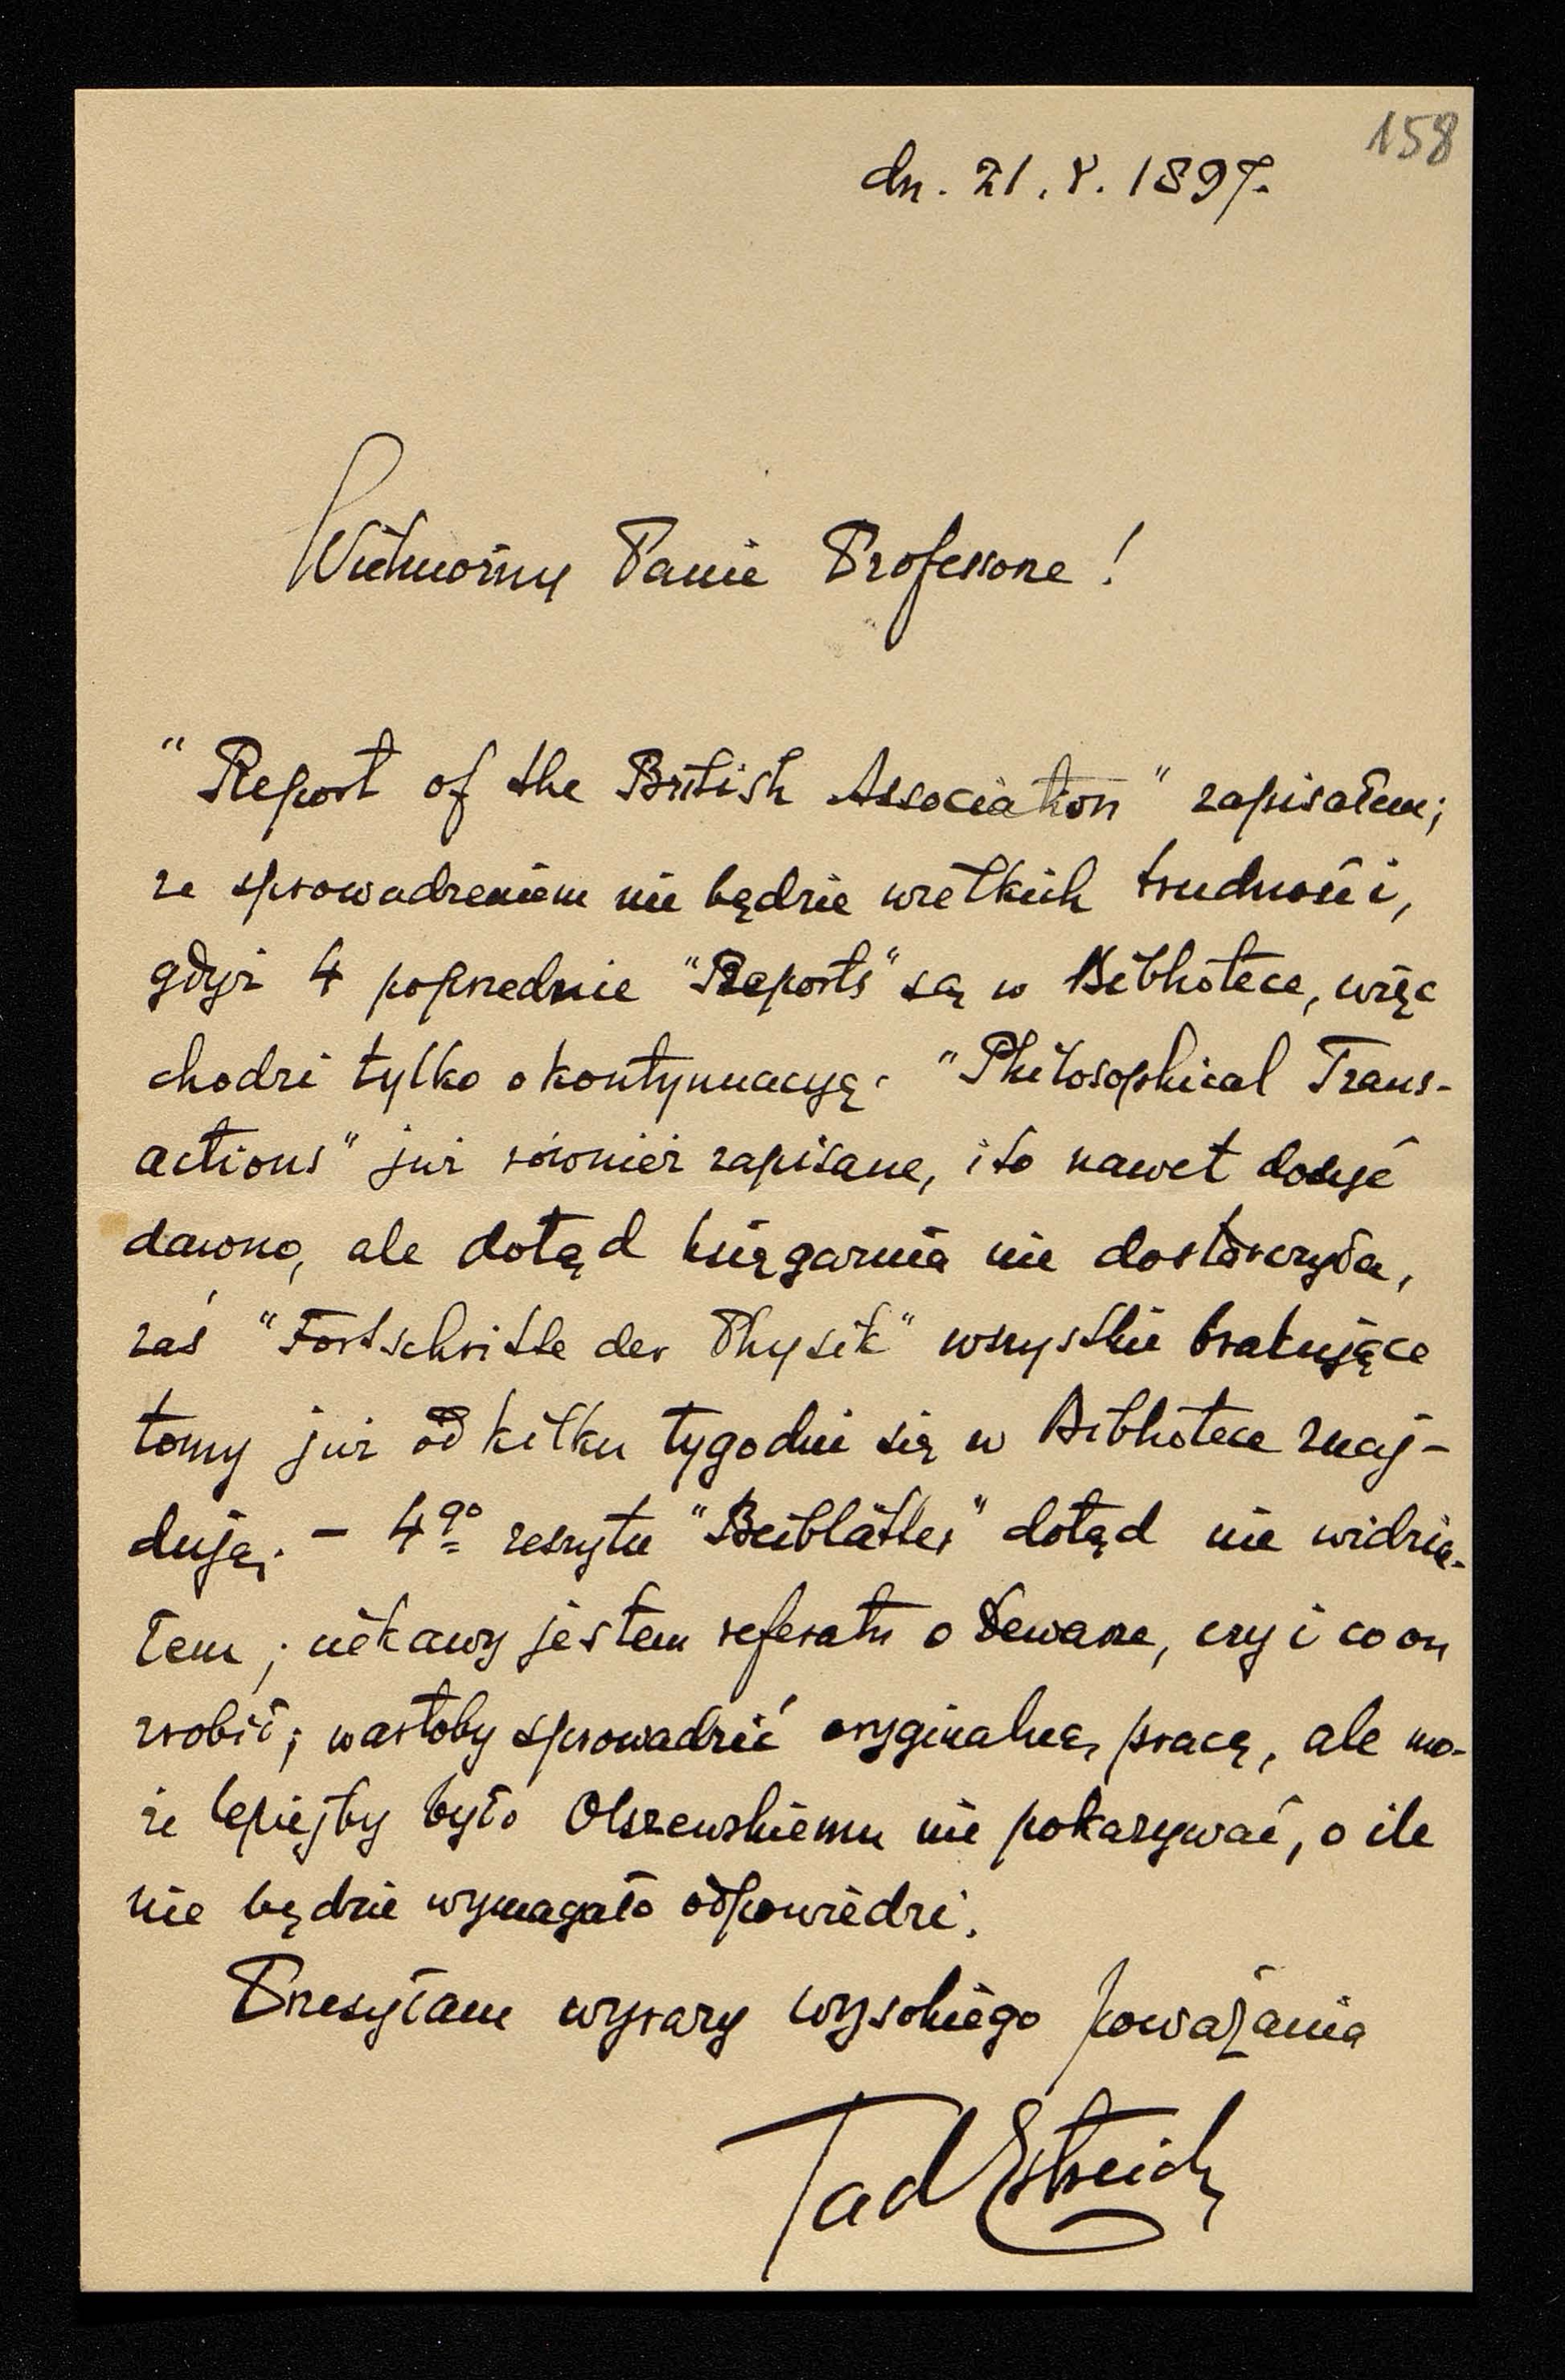 158
dn. 21. V. 1897.
Wielmożny Panie Profesorze!
"Report of the British Association" zapisałem;
ze sprowadzeniem nie będzie wielkich trudności,
gdyż 4 poprzednie "Reports" są w Bibliotece, więc
chodzi tylko o kontynuacyę. "Philosophical Trans-
actions" już również zapisane, i to nawet dosyć
dawno, ale dotąd księgarnia nie dostarczyła,
zaś "Fortschritte der Physik" wszystkie brakujące
tomy już od kilku tygodni się w Bibliotece znaj-
dują. – 4go zeszytu "Beiblätter" dotąd nie widzia-
łem; ciekawy jestem referatu o Dewarze, czy i co on
zrobił; wartoby sprowadzić oryginalną pracę, ale mo-
że lepiejby było Olszewskiemu nie pokazywać, o ile
nie będzie wymagało odpowiedzi.
Przesyłam wyrazy wysokiego poważania
Tad Estreich